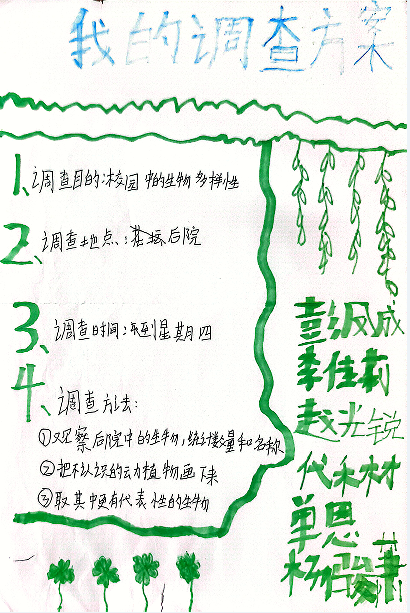 我的调查方案
1、调查目的:校园中的生物多样性
2、调查地点:后院
3、调查时间:星期四
4、调查方法:
①观察后院中的生物,统计数量和名称
②把不认识的动植物画下来
③取其中更有代表性的生物
彭风成
李佳莉
赵光锐
代禾材
单恩
杨